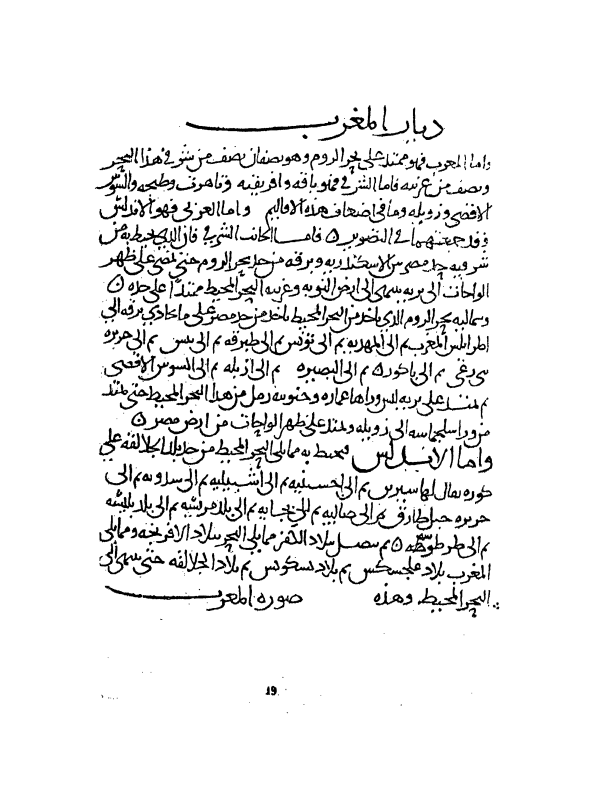 ديار المغرب
واما المغرب فهو ممتد على بحر الروم وهو نصفان نصف من شرقي هذا البحر
ونصف من غربيه فاما الشرقي فهو باقه وافريقيه وتاهرت وطنجه والسوس
الاقصى وزويله وما في اضعاف هذه الاقاليم واما الغربي فهو الاندلس
وقد جمعتهما في التصوير ٥ فاما الجانب الشرقي فان الذي يحيط به من
شرقيه حد مصر بين الاسكندريه وبرقه من حد بحر الروم حتى يمضي على ظهر
الواحات الى بريه ينتهي الى ارض النوبه وغربيه البحر المحيط ممتدا على حده ٥
وشماليه بحر الروم الذي ياخذ من البحر المحيط ياخذ من حد مصر على ما يحاذي برقه الى
اطرابلس المغرب ثم الى المهديه ثم الى تونس ثم الى طبرقه ثم الى تنس ثم الى جزيره
بني زغني ثم الى باكور ٥ ثم الى البصيره ثم الى ازيله ثم الى السوس الاقصى
ثم يمتد على بريه ليس وراها عماره وجنوبيه رمل من هذا البحر المحيط حتى يمتد
من ورا سجلماسه الى زويله ويمتد على ظهر الواحات من ارض مصر ٥
واما الاندلس فيحيط به مما يلي البحر المحيط من حد بلد الجلالقه على
كوره يقال لها سيرين ثم الى اخسنبه ثم الى اشبيليه ثم الى سدونه ثم الى
جزيره جبل طارق ثم الى مالقه ثم الى بجانه ثم الى بلاد مرسيه ثم الى بلاد بلنسيه
ثم الى طرطوشه ٥ ثم يتصل ببلاد الكفر مما يلي البحر ببلاد الافرنجه ومما يلي
المغرب ببلاد علجسكس ثم بلاد بسكونس ثم ببلاد الجلالقه حتى ينتهي الى
البحر المحيط وهذه صوره المغرب
19